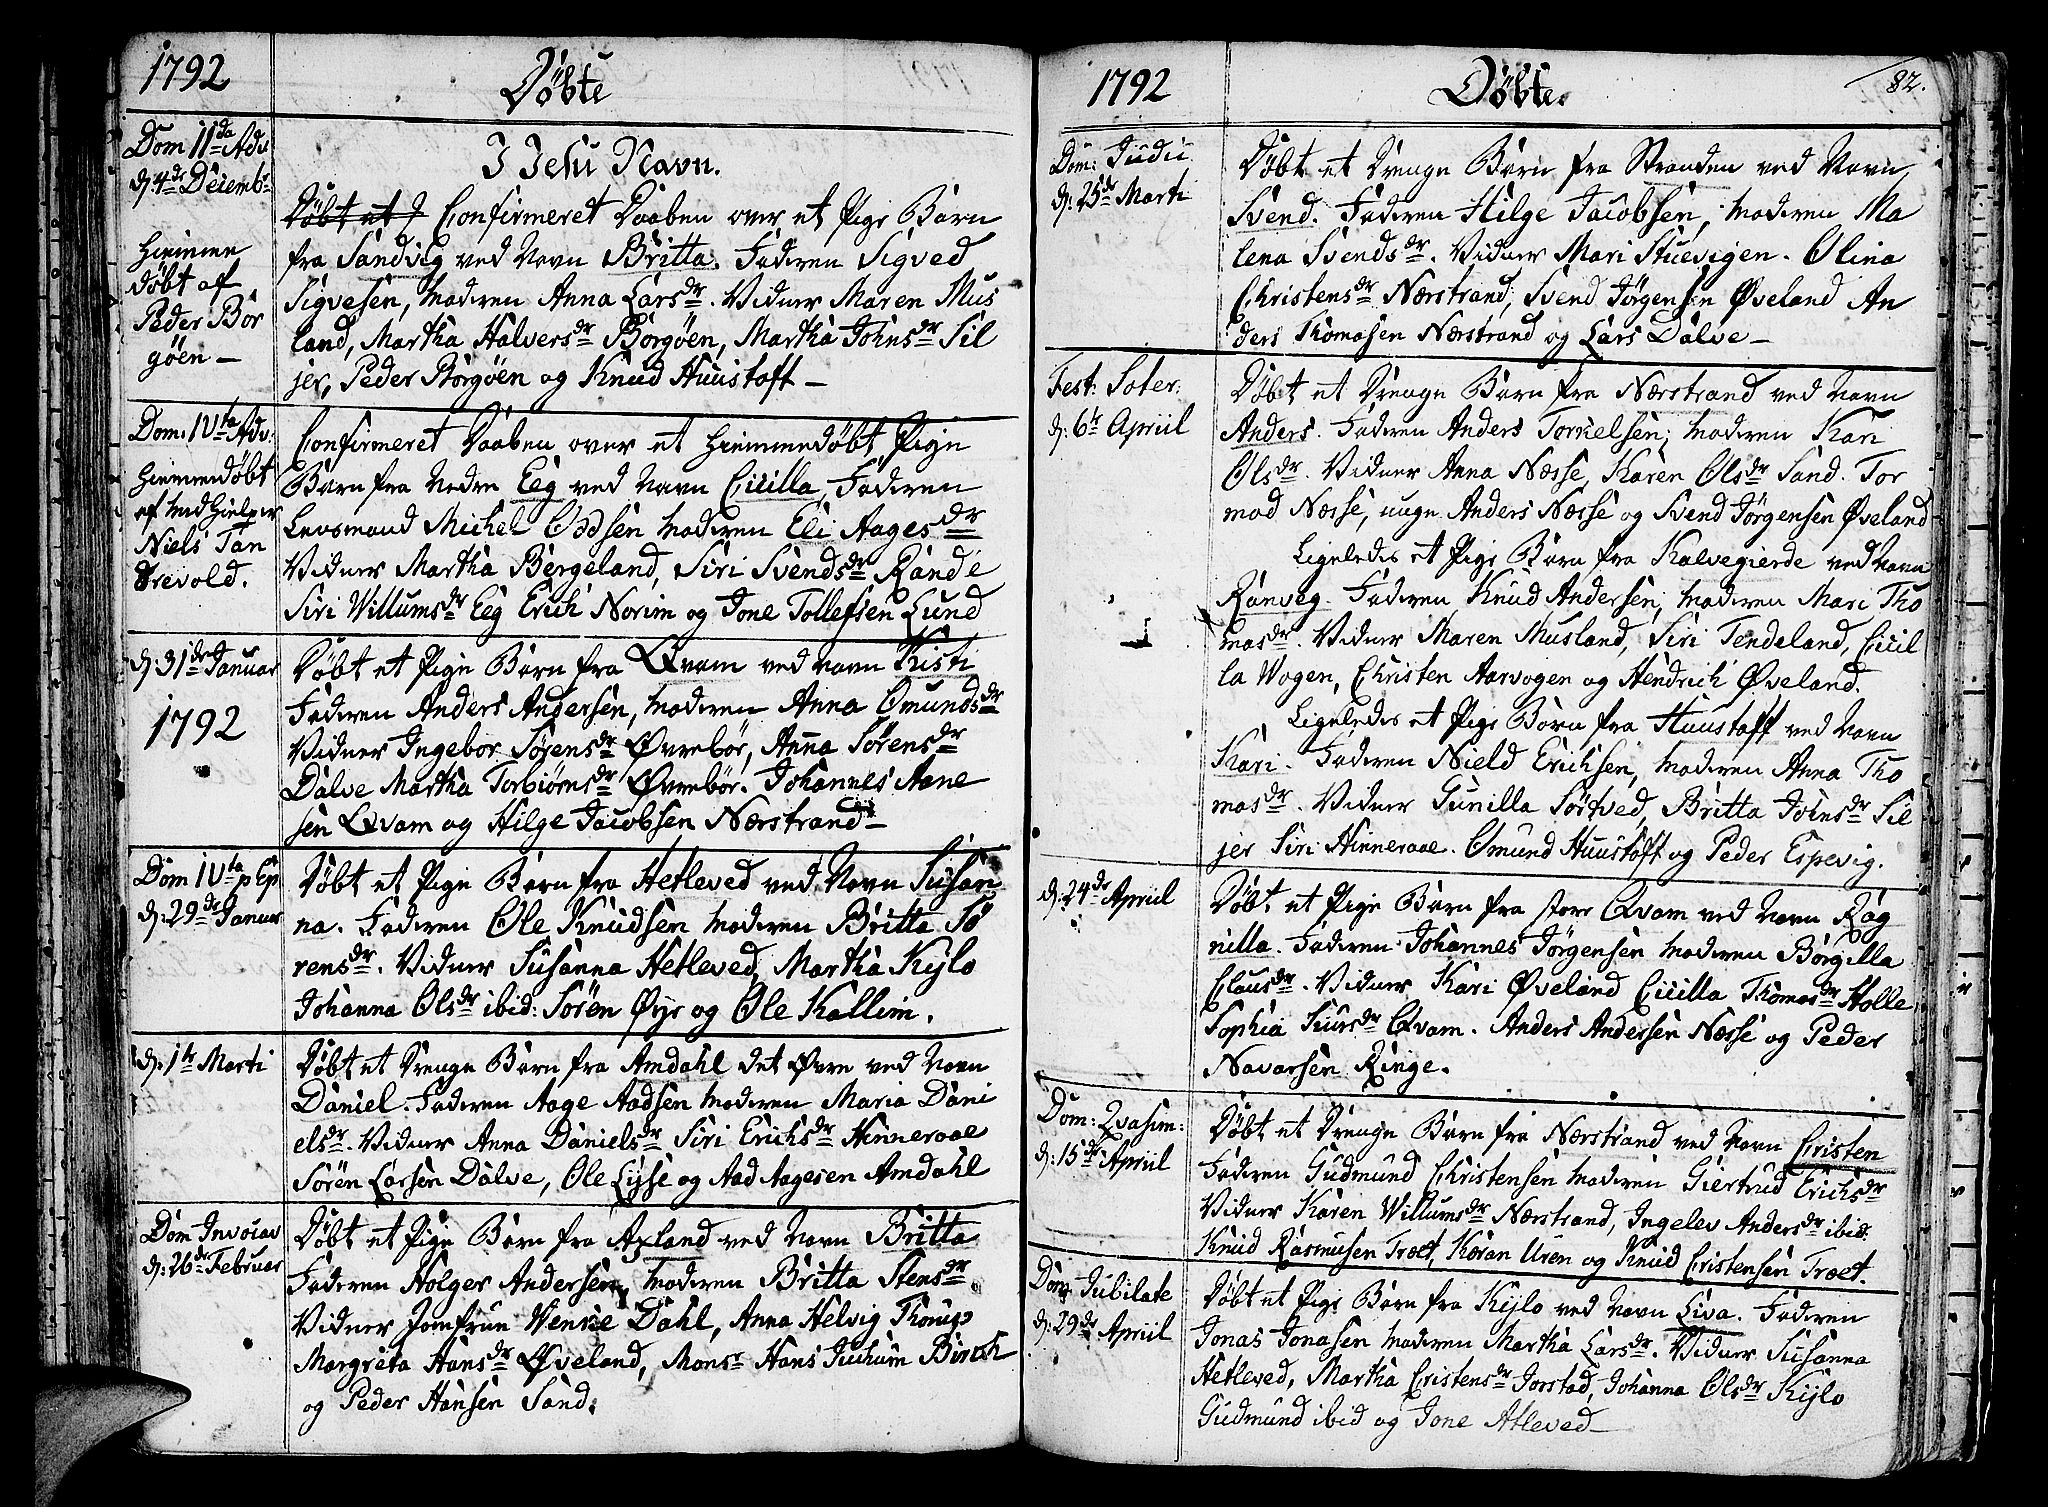 1792
Döbte
Dom II da Adv:
d: 4de Decembr
Hiemme
döbt af
Peder Bor
göen —
I Jesu Navn.
Döbt et D Confirmeret Daaben over et Pige Barn
fra Sandvig ved Navn Britta. Faderen Sigved
Sigvesen, Moderen Anna Larsdr. Vidner Maren Mus
land, Martha Halversdr Borgöen, Martha Johnsdr Sil
jer, Peder Borgöen og Knud Huustoft —
Dom: IVta Adv:
Hiemmedöbt
af Medhielper
Niels Tan
grevold.
Confirmeret Daaben over et Hiemmedöbt Pige
Barn fra Nedre Eeg ved Navn Cicilla, Faderen
Lensmand Michel Oddsen Moderen Eli Aagesdr
Vidner Martha Bergeland, Siri Svendsdr Rande
Siri Willumsdr Eeg Erich Norim og Jone Tollefsen Lund
d: 31de Januar
1792
Döbt et Pige Barn fra Qvam ved Navn Kisti
Faderen Anders Andersen, Moderen Anna Omundsdr
Vidner Ingebor Sörensdr Øvrebör, Anna Sörensdr
Dalve Martha Torbiörnsdr Øvrebör. Johannes Aane
sen Qvam og Hilge Jacobsen Nærstrand —
Dom IVta p Ep
d: 29de Januar
Döbt et Pige Barn fra Hetleved ved Navn Susan
na. Faderen Ole Knudsen Moderen Britta Sö
rensdr. Vidner Susanna Hetleved, Martha Kylo
Johanna Olsdr ibid: Sören Øye og Ole Kallim.
d: 1te Marti
Döbt et Drenge Barn fra Amdahl det Øvre ved Navn
Daniel. Faderen Aage Aadsen Moderen Maria Dani
elsdr. Vidner Anna Danielsdr Siri Erichsdr Hinneraae
Sören Larsen Dalve, Ole Lyse og Aad Aagesen Amdahl
Dom Invocav
d: 26de Februar
Döbt et Pige Barn fra Axland ved Navn Britta
Faderen Holger Andersen, Moderen Britta Stensdr.
Vidner Jomfrue Wenke Dahl, Anna Helvig Thorup
Margreta Hansdr Øveland, Monsr Hans Juchum Birch
og Peder Hansen Sand.
1792
Döbte.
82.
Dom: Judic
d: 25de Marti
Döbt et Drenge Barn fra Stranden ved Navn
Svend. Faderen Hilge Jacobsen, Moderen Ma
lena Svendsdr. Vidner Mari Stuevigen. Olina
Christensdr Nærstrand, Svend Jörgensen Øveland An
ders Thomasen Nærstrand og Lars Dalve —
Fest: Soter:
d: 6te Apriil
Döbt et Drenge Barn fra Nærstrand ved Navn
Anders. Faderen Anders Torkelsen, Moderen Kari
Olsdr. Vidner Anna Næsse, Karen Olsdr Sand. Tor
mod Næsse, unge Anders Næsse og Svend Jörgensen Øveland —
Ligeledes et Pige Barn fra Kalvegierde ved Navn
Ranveg. Faderen Knud Andersen, Moderen Mari Tho
masdr. Vidner Maren Musland, Siri Tendeland, Cicil
la Wogen, Christen Aarvogen og Hendrich Øveland.
Ligeledes et Pige Barn fra Huustoff ved Navn
Kari. Faderen Nield Erichsen, Moderen Anna Tho
masdr. Vidner Gunilla Sörtved, Britta Johnsdr Sil
jer Siri Hinneraae. Omund Huustoft og Peder Espevig.
d: 24de Apriil
Döbt et Pige Barn fra store Qvam ved Navn Rag
nilla. Faderen Johannes Jörgensen Moderen Börgilla
Clausdr. Vidner Kari Øveland Cicilla Thomasdr Holle
Sophia Siursdr Qvam. Anders Andersen Næsse og Peder
Navarsen Ringe.
Dom: Qvasim:
d: 15de Apriil
Döbt et Drenge Barn fra Nærstrand ved Navn Cristen
Faderen Gudmund Christensen Moderen Giertrud Erichsdr
Vidner Karen Willumsdr Nærstrand, Ingelev Andersdr ibid:
Knud Rasmusen Troet, Koran Uren og Knud Cristensen Troet.
Dom Jubilate
d: 29de Apriil
Döbt et Pige Barn fra Kylo ved Navn Liva. Faderen
Jonas Jonasen Moderen Martha Larsdr. Vidner Susanna
Hetleved, Martha Cristensdr Jorstad, Johanna Olsdr Kylo
Gudmund ibid og Jone Atleved —